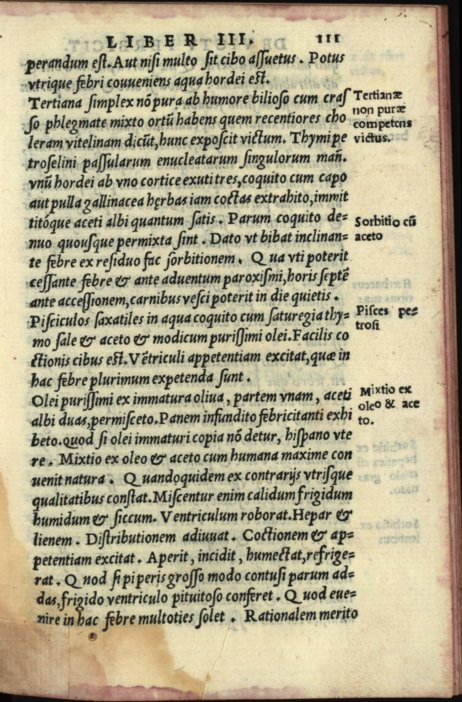 LIBER III. 111
perandum est. Aut nisi multo sit cibo assuetus. Potus
vtrique febri couueniens aqua hordei est.
Tertiana simplex nō pura ab humore bilioso cum cras
so phlegmate mixto ortū habens quem recentiores cho
leram vitelinam dicūt, hunc exposcit victum. Thymi pe
troselini passularum enucleatarum singulorum mañ.
vnū hordei ab vno cortice exuti tres, coquito cum capo
aut pulla gallinacea herbas iam coctas extrahito, immit
titóque aceti albi quantum satis. Parum coquito de-
nuo quousque permixta sint. Dato vt bibat inclinan-
te febre ex residuo fac sorbitionem. Qua vti poterit
cessante febre & ante aduentum paroxismi, horis septē
ante accessionem, carnibus vesci poterit in die quietis.
Pisciculos saxatiles in aqua coquito cum satureia thy-
mo sale & aceto & modicum purissimi olei. Facilis co
ctionis cibus est. Vētriculi appetentiam excitat, quæ in
hac febre plurimum expetenda sunt.
Olei purissimi ex immatura oliua, partem vnam, aceti
albi duas, permisceto. Panem infundito febricitanti exhi
beto. quod si olei immaturi copia nō detur, hispano vte
re. Mixtio ex oleo & aceto cum humana maxime con
uenit natura. Quandoquidem ex contrarijs vtrisque
qualitatibus constat. Miscentur enim calidum frigidum
humidum & siccum. Ventriculum roborat. Hepar &
lienem. Distributionem adiuuat. Coctionem & ap-
petentiam excitat. Aperit, incidit, humectat, refrige-
rat. Quod si piperis grosso modo contusi parum ad-
das, frigido ventriculo pituitoso conferet. Quod eue-
nire in hac febre multoties solet. Rationalem merito
Tertianæ
non puræ
competens
victus.
Sorbitio cū
aceto
Pisces pe-
trosi
Mixtio ex
oleo & ace
to.